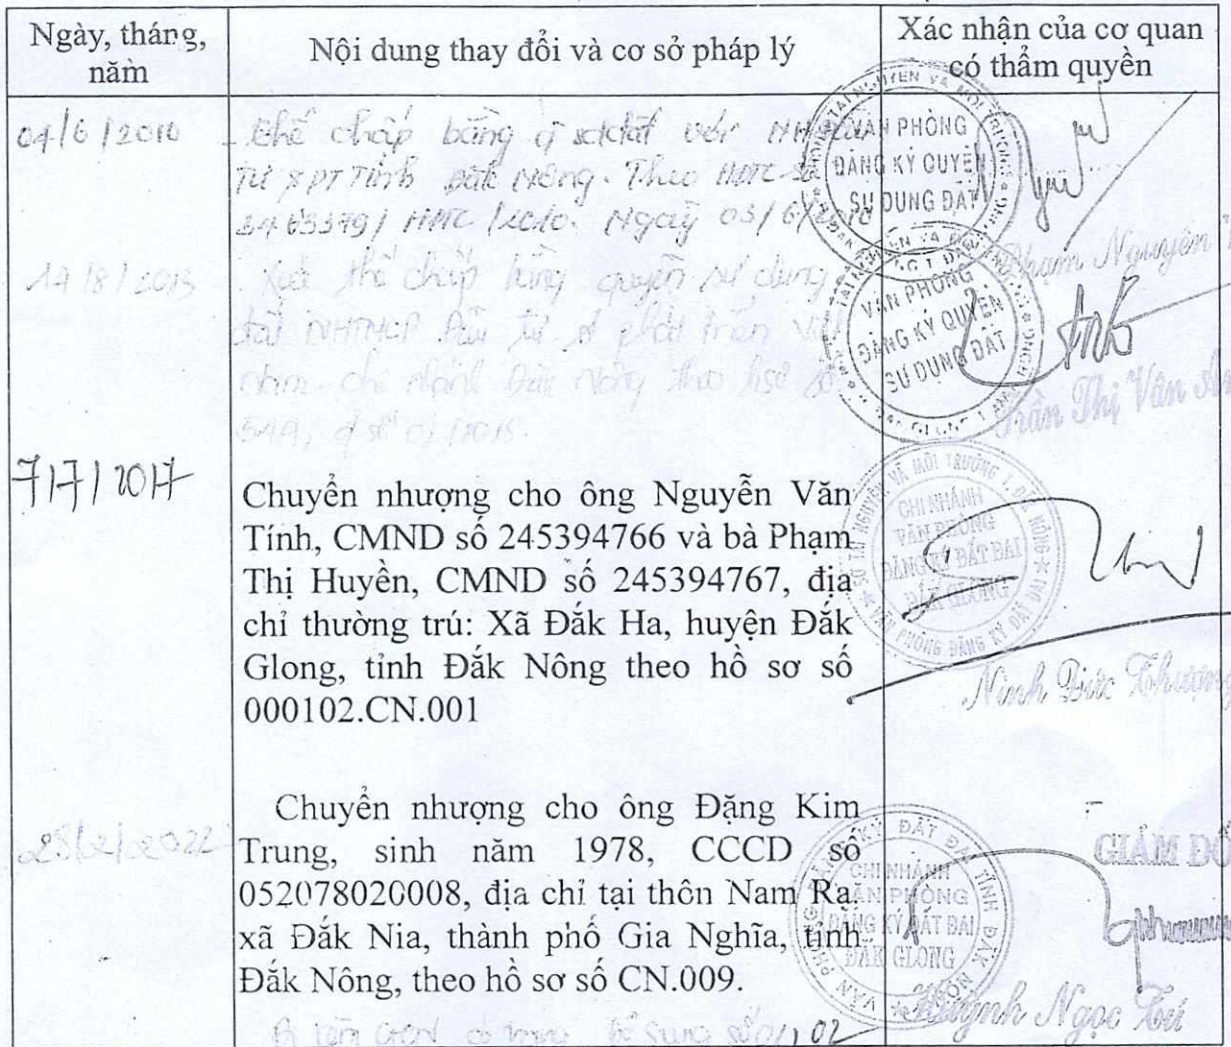 Ngày, tháng, năm
Nội dung thay đổi và cơ sở pháp lý
Xác nhận của cơ quan có thẩm quyền
04/6/2010
Thế chấp bằng q sd đất với
Tư & PT Tỉnh Đăk Nông. Theo HĐTC số
HĐTC/2010. Ngày 03/6/2010
VĂN PHÒNG
ĐĂNG KÝ QUYỀN
SỬ DỤNG ĐẤT
Phạm Nguyên
14/8/2015
Xoá thế chấp bằng quyền sử dụng
đất NHTMCP Đầu tư & phát triển Việt
Nam chi nhánh Đăk Nông theo số
544, q số 01/2015.
VĂN PHÒNG
ĐĂNG KÝ QUYỀN
SỬ DỤNG ĐẤT
Trần Thị Vân An
7/7/2017
Chuyển nhượng cho ông Nguyễn Văn
Tính, CMND số 245394766 và bà Phạm
Thị Huyền, CMND số 245394767, địa
chỉ thường trú: Xã Đắk Ha, huyện Đắk
Glong, tỉnh Đắk Nông theo hồ sơ số
000102.CN.001
CHI NHÁNH
VĂN PHÒNG
ĐĂNG KÝ ĐẤT ĐAI
ĐĂK GLONG
Ninh Đức Thượng
28/2/2022
Chuyển nhượng cho ông Đặng Kim
Trung, sinh năm 1978, CCCD số
052078020008, địa chỉ tại thôn Nam Ra,
xã Đắk Nia, thành phố Gia Nghĩa, tỉnh
Đắk Nông, theo hồ sơ số CN.009.
GIÁM ĐỐ
CHI NHÁNH
VĂN PHÒNG
ĐĂNG KÝ ĐẤT ĐAI
ĐĂK GLONG
Huỳnh Ngọc Tú
có trang bổ sung số 01, 02